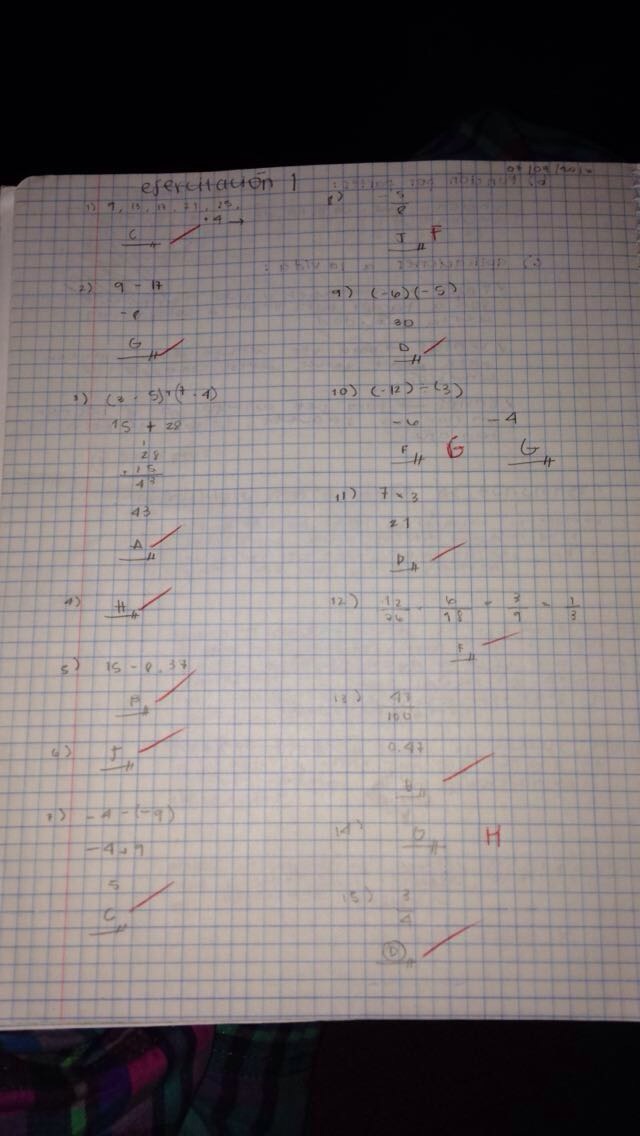 ejercitación 1
1) 9, 13, 17, 21, 25,
+4 →
C
2) 9 - 17
-8
G
3) (3 · 5) + (7 · 4)
15 + 28
1
28
+15
43
43
A
4) H
5) 15 - 8.37
B
6) J
7) -4 - (-9)
-4 + 9
5
C
8) - 5
8
J F
9) (-6)(-5)
30
D
10) (-12) ÷ (3)
-6 -4
F G G
11) 7 × 3
21
D
12) 12/36 = 6/18 = 3/9 = 1/3
F
13) 47
100
0.47
14) D H
15) 3
4
D